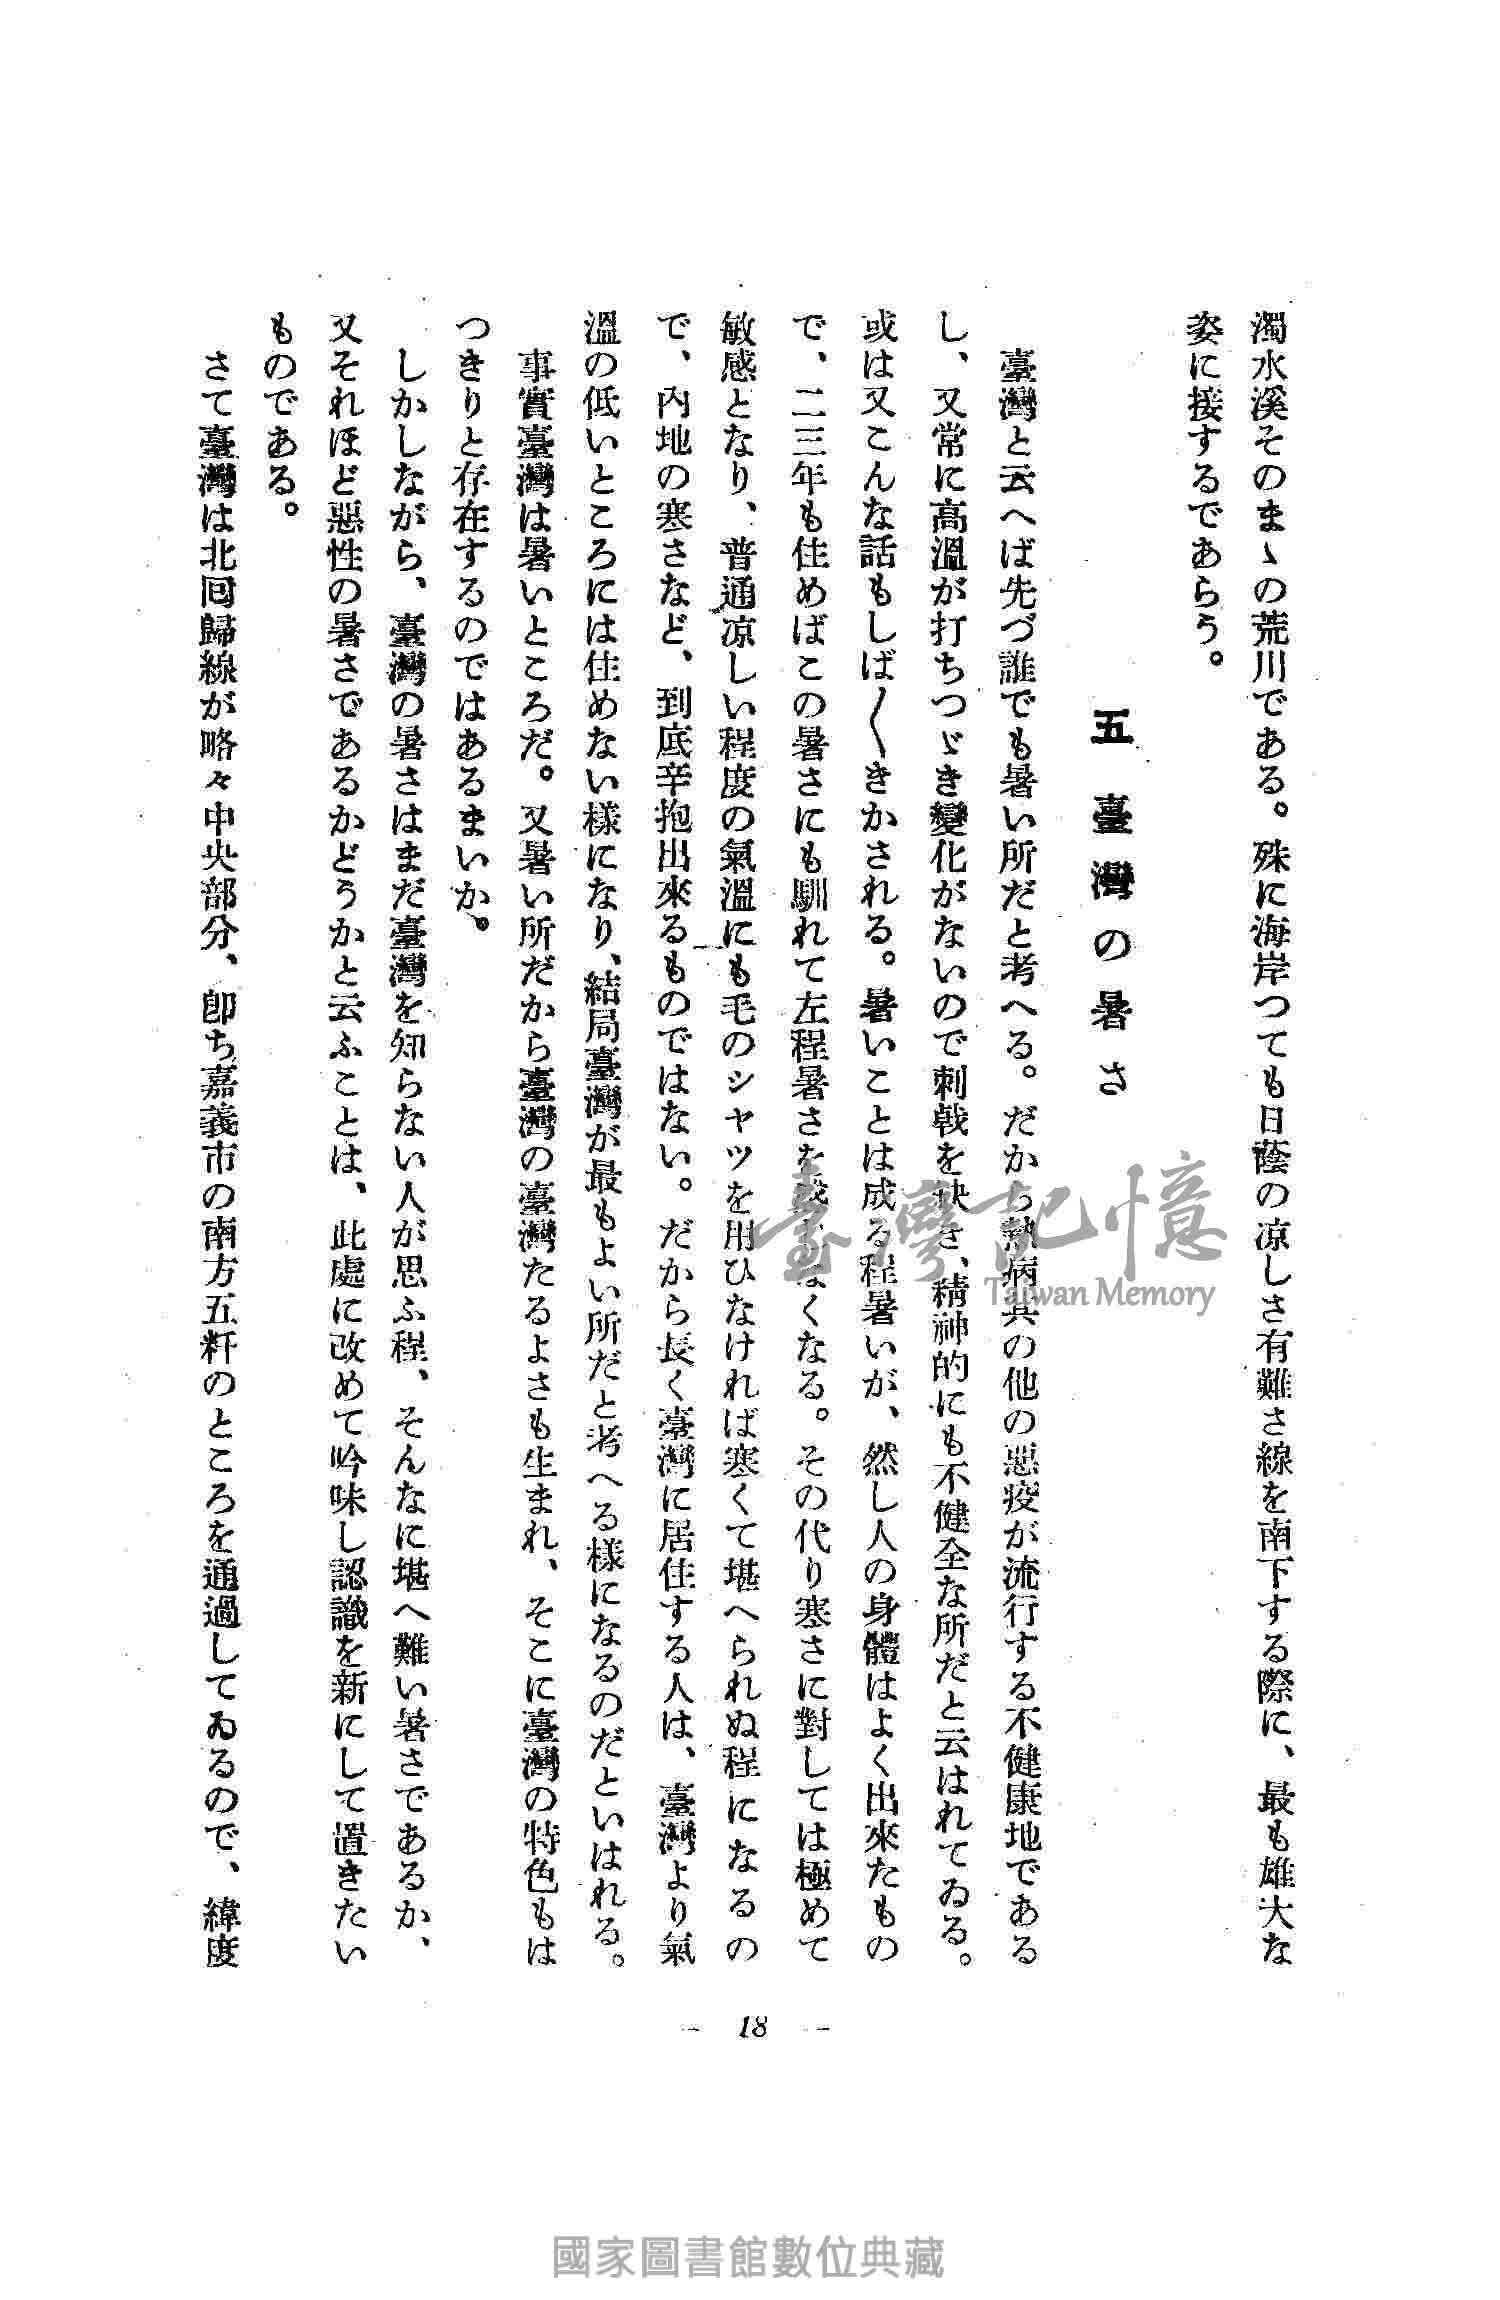 濁水溪そのまゝの荒川である。殊に海岸つても日蔭の凉しさ有難さ線を南下する際に、最も雄大な
姿に接するであらう。
五 臺灣の暑さ
臺灣と云へば先づ誰でも暑い所だと考へる。だから熱病其の他の惡疫が流行する不健康地である
し、又常に高溫が打ちつゞき變化がないので刺戟を缺き、精神的にも不健全な所だと云はれてゐる。
或は又こんな話もしば〱きかされる。暑いことは成る程暑いが、然し人の身體はよく出來たもの
で、二三年も住めばこの暑さにも馴れて左程暑さを感じなくなる。その代り寒さに對しては極めて
敏感となり、普通凉しい程度の氣溫にも毛のシヤツを用ひなければ寒くて堪へられぬ程になるの
で、內地の寒さなど、到底辛抱出來るものではない。だから長く臺灣に居住する人は、臺灣より氣
溫の低いところには住めない樣になり、結局臺灣が最もよい所だと考へる樣になるのだといはれる。
事實臺灣は暑いところだ。又暑い所だから臺灣の臺灣たるよさも生まれ、そこに臺灣の特色もは
つきりと存在するのではあるまいか。
しかしながら、臺灣の暑さはまだ臺灣を知らない人が思ふ程、そんなに堪へ難い暑さであるか、
又それほど惡性の暑さであるかどうかと云ふことは、此處に改めて吟味し認識を新にして置きたい
ものである。
さて臺灣は北囘歸線が略々中央部分、卽ち嘉義市の南方五粁のところを通過してゐるので、緯度
— 18 —
臺灣記憶
Taiwan Memory
國家圖書館數位典藏